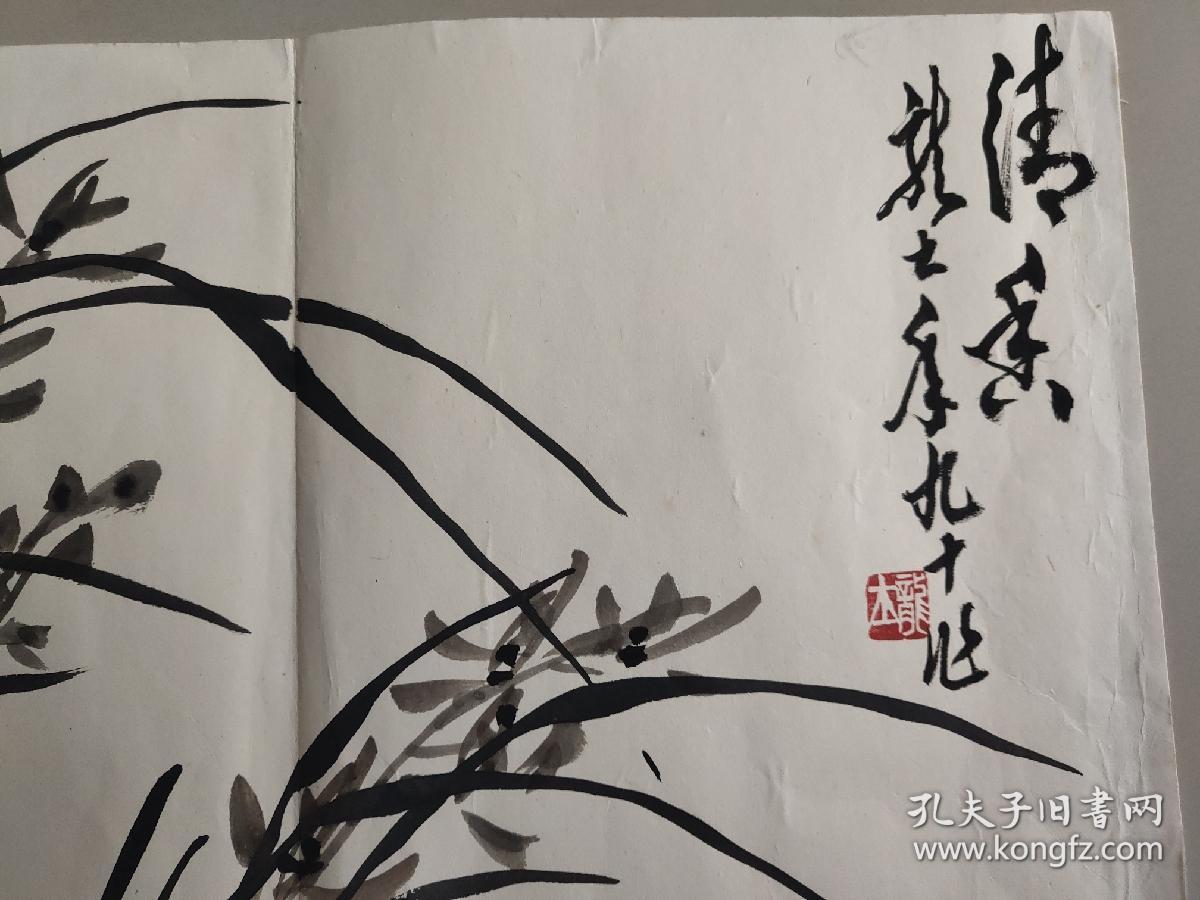 清香
龙士年九十作
龍士
孔夫子旧書网
www.kongfz.com